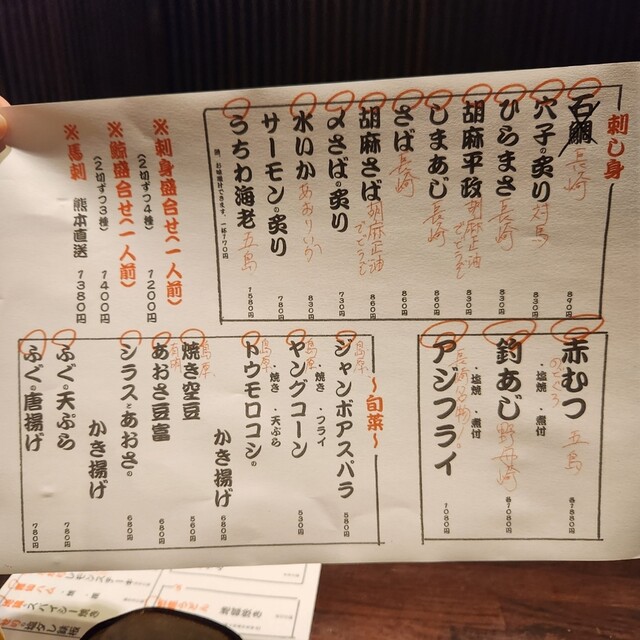 刺し身
石鯛 長崎 890円
穴子の炙り 対馬 830円
ひらまさ 長崎 830円
胡麻平政 胡麻正油 830円
しまあじ 長崎 860円
さば 長崎 860円
胡麻さば 胡麻正油 860円
〆さばの炙り 730円
水いか あおりいか 830円
サーモンの炙り 780円
うちわ海老 五島 1580円
※刺身盛合せ(一人前)
(2切ずつ4種) 1200円
※鯨盛合せ(一人前)
(2切ずつ3種) 1400円
※馬刺 熊本直送 1380円
赤むつ 五島 1580円
のどぐろ
・塩焼 ・煮付
釣あじ 野母崎 1080円
・塩焼 ・煮付
アジフライ 1080円
長崎名物
〜旬菜〜
ジャンボアスパラ 580円
島原 ・焼き ・フライ
ヤングコーン 530円
島原 ・焼き ・天ぷら
トウモロコシの
かき揚げ 680円
島原
焼き空豆 560円
島原
あおさ豆富 680円
シラスとあおさの 680円
かき揚げ
ふぐの天ぷら 780円
ふぐの唐揚げ 780円
スパイシー焼き